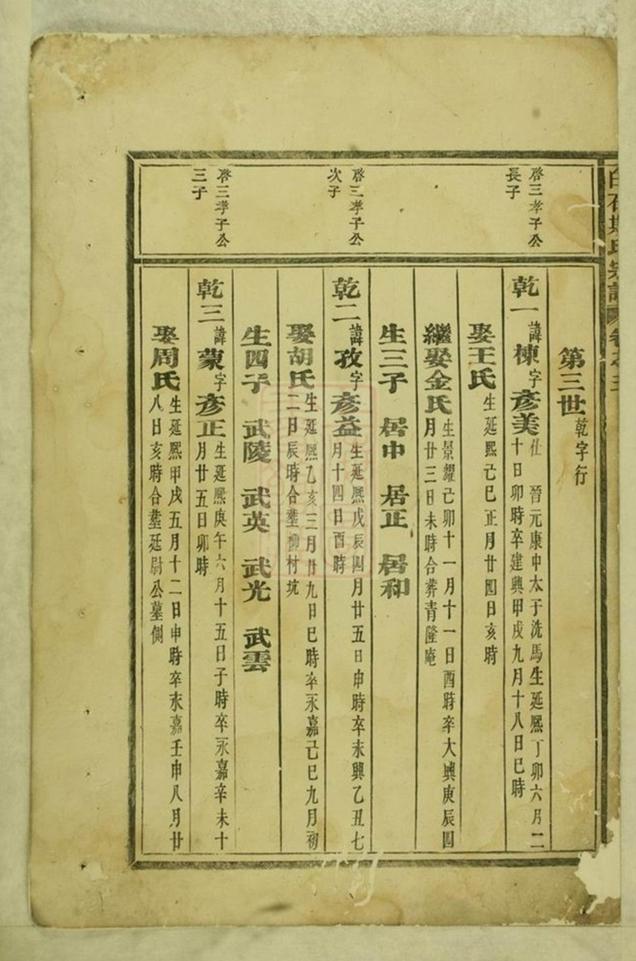 氏宗譜 卷之三
第三世 乾字行
啓三孝子公
長子
乾一 諱棟 字彥美 仕 晉元康中太子洗馬生延熙丁卯六月二
十日卯時卒建興甲戌九月十八日巳時
娶王氏 生延熙己巳正月廿四日亥時
繼娶金氏 生景耀己卯十一月十一日酉時卒大興庚辰四
月廿三日未時合葬青隆庵
生三子 居中 居正 居和
啓三孝子公
次子
乾二 諱孜 字彥益 生延熙戊辰四月廿五日申時卒永興乙丑七
月十四日酉時
娶胡氏 生延熙乙亥三月廿九日巳時卒永嘉己巳九月初
二日辰時合塟柳村坑
生四子 武陵 武英 武光 武雲
啓三孝子公
三子
乾三 諱蒙 字彥正 生延熙庚午六月十五日子時卒永嘉辛未十
月廿五日卯時
娶周氏 生延熙甲戌五月十二日申時卒永嘉壬申八月廿
八日亥時合塟延尉公墓側